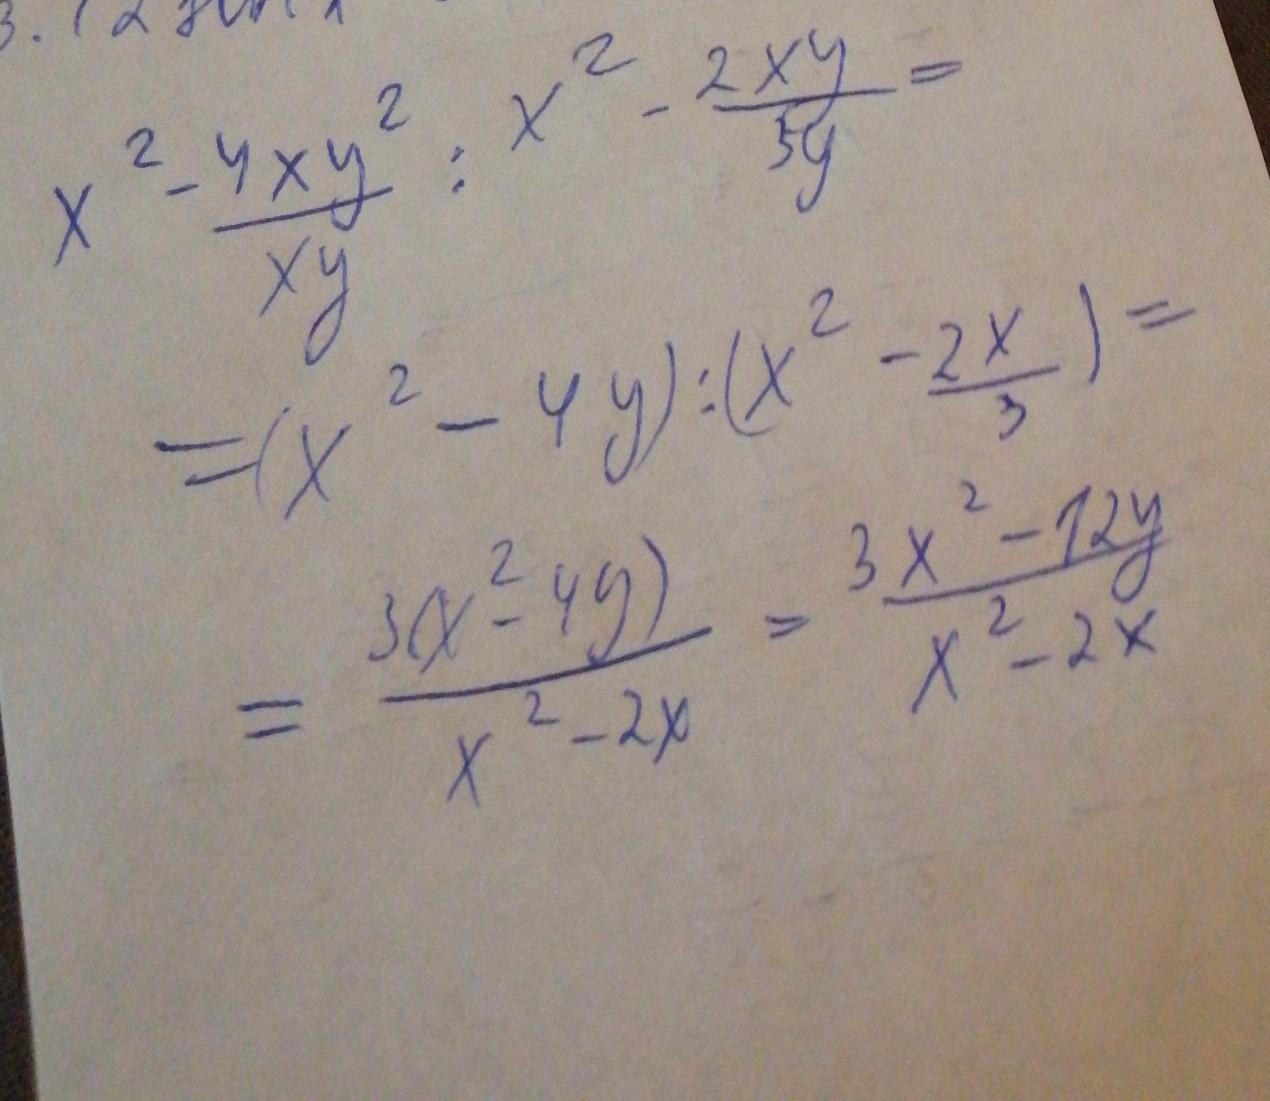 x² - 4xy²/xy : x² - 2xy/3y =
= (x² - 4y) : (x² - 2x/3) =
= 3(x² - 4y)/x² - 2x = 3x² - 12y/x² - 2x